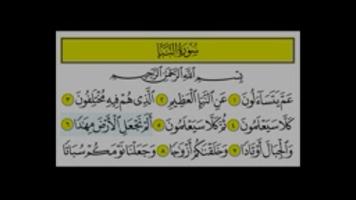 سُورَةُ النَّبَإِ
بِسْمِ اللَّهِ الرَّحْمَٰنِ الرَّحِيمِ
عَمَّ يَتَسَآءَلُونَ ١ عَنِ النَّبَإِ الْعَظِيمِ ٢ الَّذِى هُمْ فِيهِ مُخْتَلِفُونَ ٣
كَلَّا سَيَعْلَمُونَ ٤ ثُمَّ كَلَّا سَيَعْلَمُونَ ٥ أَلَمْ نَجْعَلِ الْأَرْضَ مِهَٰدًا ٦
وَالْجِبَالَ أَوْتَادًا ٧ وَخَلَقْنَٰكُمْ أَزْوَٰجًا ٨ وَجَعَلْنَا نَوْمَكُمْ سُبَاتًا